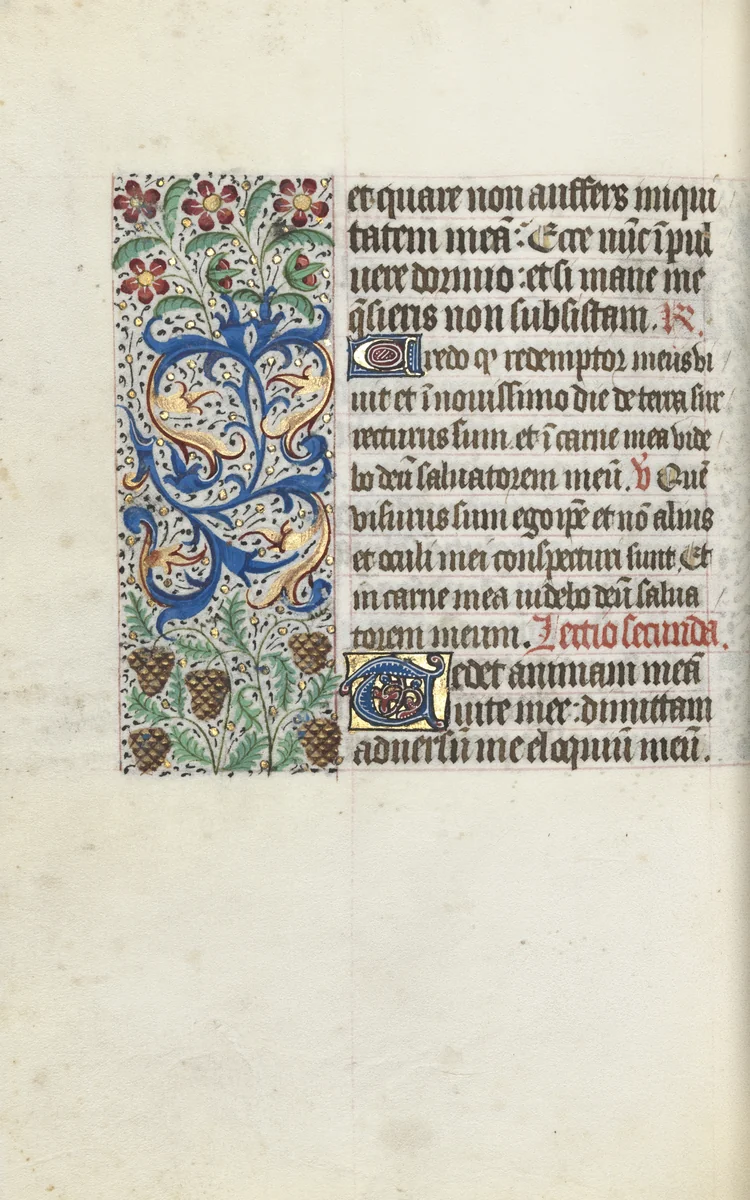 et quare non auffers iniqui
tatem meā: Ecce nūc ī pul
uere dormio: et si mane me
q̄sieris non subsistam. R̷.
Credo qꝫ redemptor meus vi
uit et ī nouissimo die de terra sur
recturus sum. et ī carne mea vide
bo deū saluatorem meū. v̷ Quē
visurus sum ego ip̄e et nō alius
et oculi mei conspecturi sunt. Et
in carne mea uidebo deū salua
torem meum. Lectio secunda.
Tedet animam meā
uite mee: dimittam
aduersū me eloquiū meū.